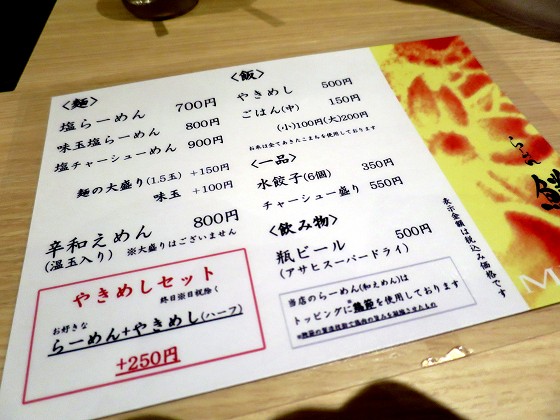 〈麺〉
塩らーめん 700円
味玉塩らーめん 800円
塩チャーシューめん 900円
麺の大盛り(1.5玉) +150円
味玉 +100円
辛和えめん 800円
(温玉入り) ※大盛りはございません
やきめしセット
終日※日祝除く
お好きな
らーめん+やきめし(ハーフ)
+250円
〈飯〉
やきめし 500円
ごはん(中) 150円
(小)100円(大)200円
お米は全てあきたこまちを使用しております
〈一品〉
水餃子(6個) 350円
チャーシュー盛り 550円
〈飲み物〉
瓶ビール 500円
(アサヒスーパードライ)
当店のらーめん(和えめん)は
トッピングに鶏節を使用しております
表示金額は税込み価格です
らーめん
M